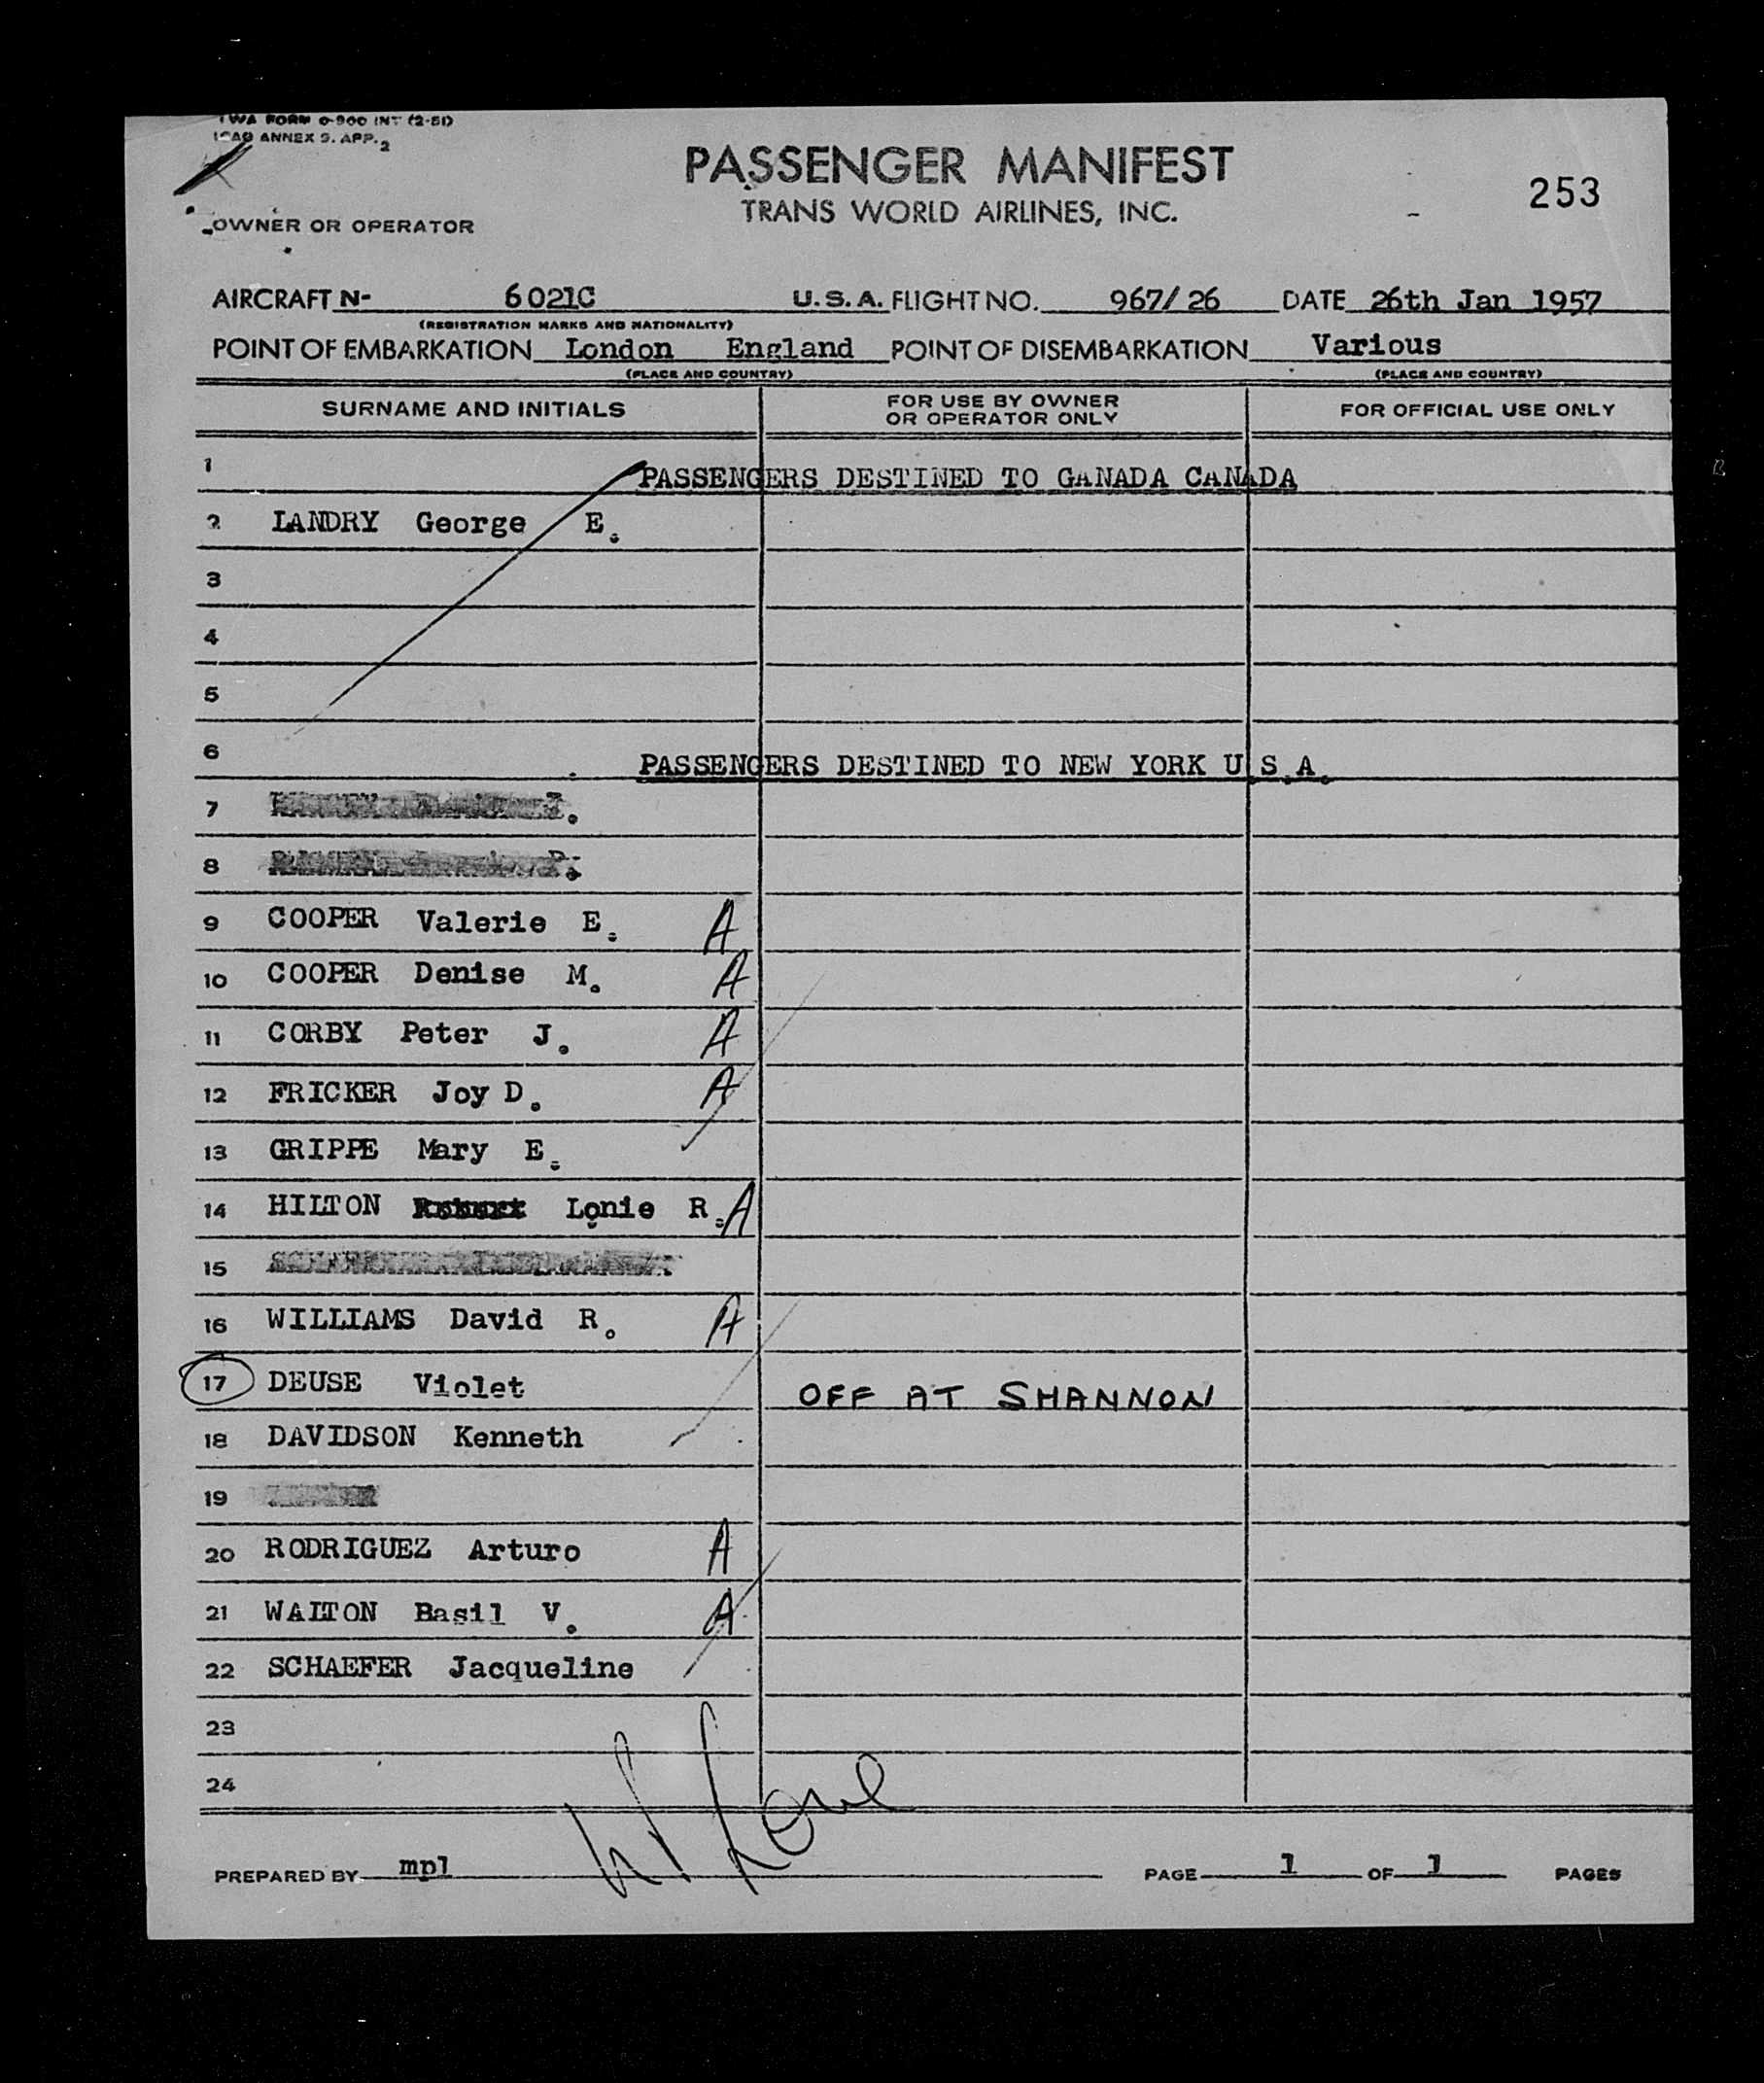 TWA FORM 0-900 INT (2-51)
ICAO ANNEX 9. APP. 2
PASSENGER MANIFEST
253
TRANS WORLD AIRLINES, INC.
OWNER OR OPERATOR
AIRCRAFT N- 6021C U.S.A. FLIGHT NO. 967/26 DATE 26th Jan 1957
(REGISTRATION MARKS AND NATIONALITY)
POINT OF EMBARKATION London England POINT OF DISEMBARKATION Various
(PLACE AND COUNTRY) (PLACE AND COUNTRY)
SURNAME AND INITIALS FOR USE BY OWNER OR OPERATOR ONLY FOR OFFICIAL USE ONLY
1 PASSENGERS DESTINED TO GANADA CANADA
2 LANDRY George E.
3
4
5
6 PASSENGERS DESTINED TO NEW YORK U.S.A.
7
8
9 COOPER Valerie E. A
10 COOPER Denise M. A
11 CORBY Peter J. A
12 FRICKER Joy D. A
13 GRIPPE Mary E.
14 HILTON Lonie R. A
15
16 WILLIAMS David R. A
17 DEUSE Violet OFF AT SHANNON
18 DAVIDSON Kenneth
19
20 RODRIGUEZ Arturo A
21 WALTON Basil V. A
22 SCHAEFER Jacqueline
23
24
PREPARED BY mpl PAGE 1 OF 1 PAGES